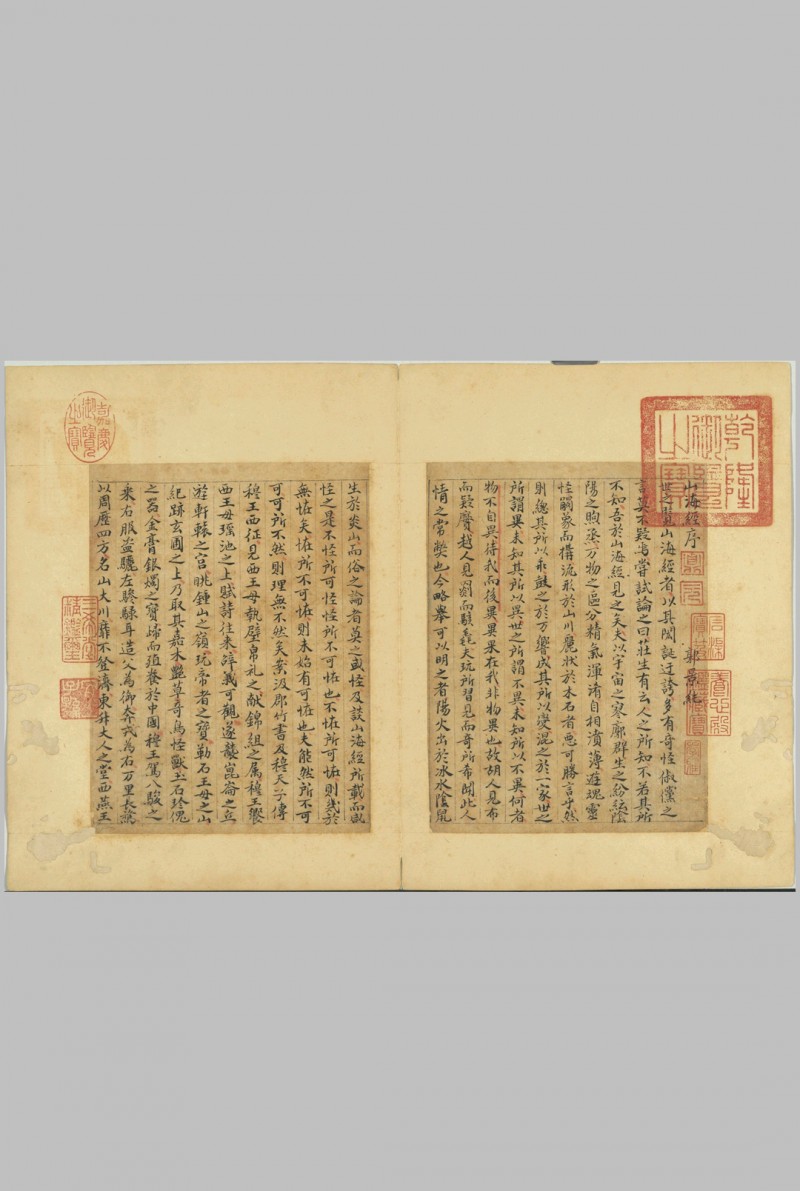 乾隆御覽之寶
山海經序 郭景純
世之覽山海經者以其閎誕迂誇多有奇怪俶儻之
言莫不疑焉嘗試論之曰莊生有云人之所知不若其所
不知吾於山海經見之矣夫以宇宙之寥廓群生之紛紜陰
陽之煦蒸万物之區分精氣渾淆自相濆薄遊魂靈
怪觸象而構流形於山川麗狀於木石者惡可勝言乎然
則總其所以乖鼓之於万響成其所以變混之於一家世之
所謂異未知其所以異世之所謂不異未知所以不異何者
物不自異待我而後異異果在我非物異也故胡人見布
而疑黂越人見罽而駭毳夫玩所習見而奇所希聞此人
情之常獘也今略舉可以明之者陽火出於冰水陰鼠
生於炎山而俗之論者莫之或怪及談山海經所載而咸
怪之是不怪所可怪怪所不可怪也不怪所可怪則幾於
無怪矣怪所不可怪則未始有可怪也夫能然所不可
可可所不然則理無不然矣案汲郡竹書及穆天子傳
穆王西征見西王母執璧帛礼之献錦組之属穆王饗
西王母瑶池之上賦詩往来辞義可觀遂襲崑崙之丘
遊軒轅之宮眺鍾山之嶺玩帝者之寶勒石王母之山
紀跡玄圃之上乃取其嘉木艷草奇鳥怪獸玉石珍傀
之器金膏銀燭之寶歸而殖養於中國穆王駕八駿之
乘右服盗驪左驂騄耳造父為御奔戎為右万里長騖
以周歷四方名山大川靡不登濟東升大人之堂西燕王
嘉慶御覽之寶